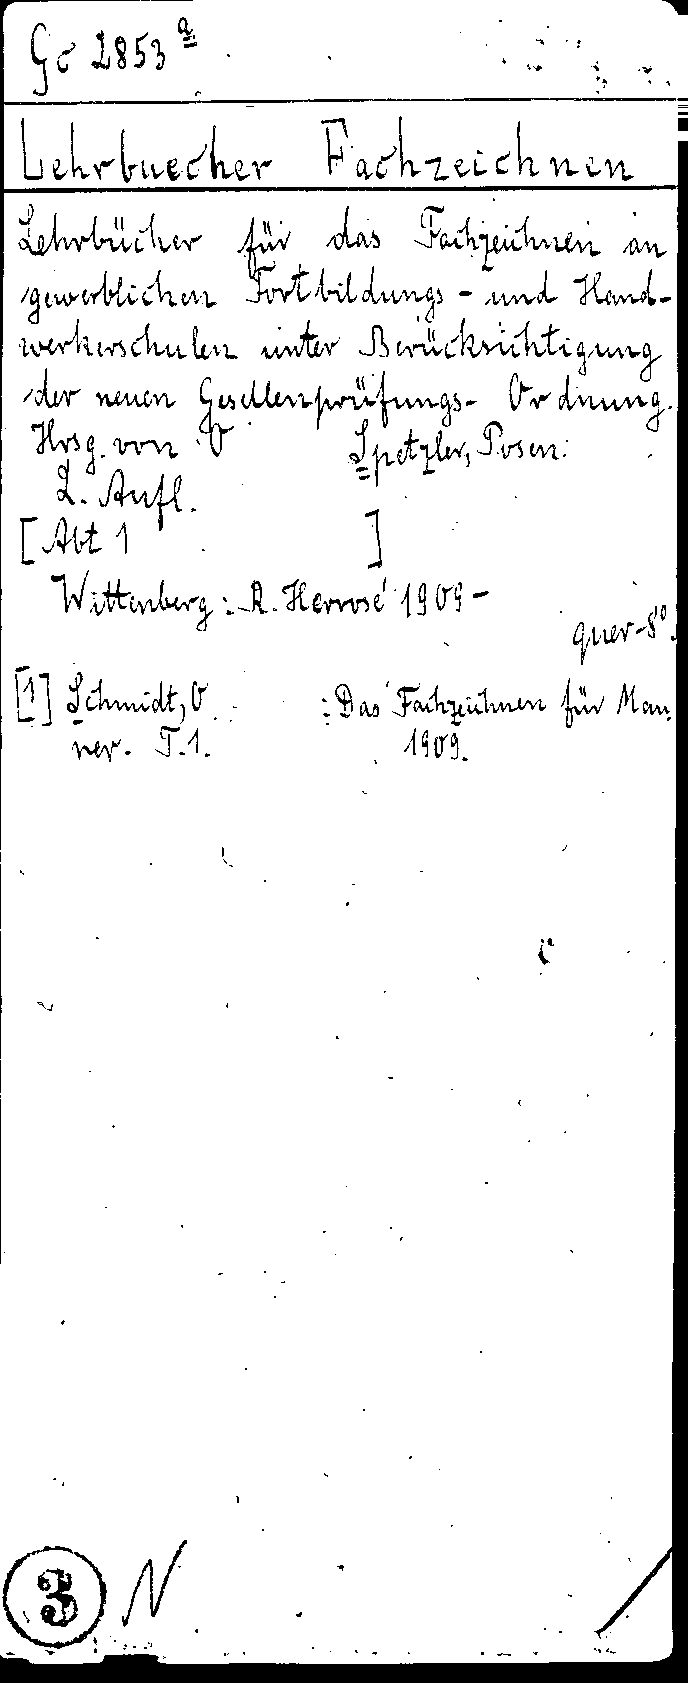 Gc 2853 a
Lehrbuecher Fachzeichnen
Lehrbücher für das Fachzeichnen an
gewerblichen Fortbildungs- und Hand-
werkerschulen unter Berücksichtigung
der neuen Gesellenprüfungs- Ordnung.
Hrsg. von O Spetzler, Posen.
2. Aufl.
[Abt 1 ]
Wittenberg: R. Herrosé 1909-
quer-8°.
[1] Schmidt, O : Das Fachzeichnen für Mau
rer. T.1. 1909.
3 N